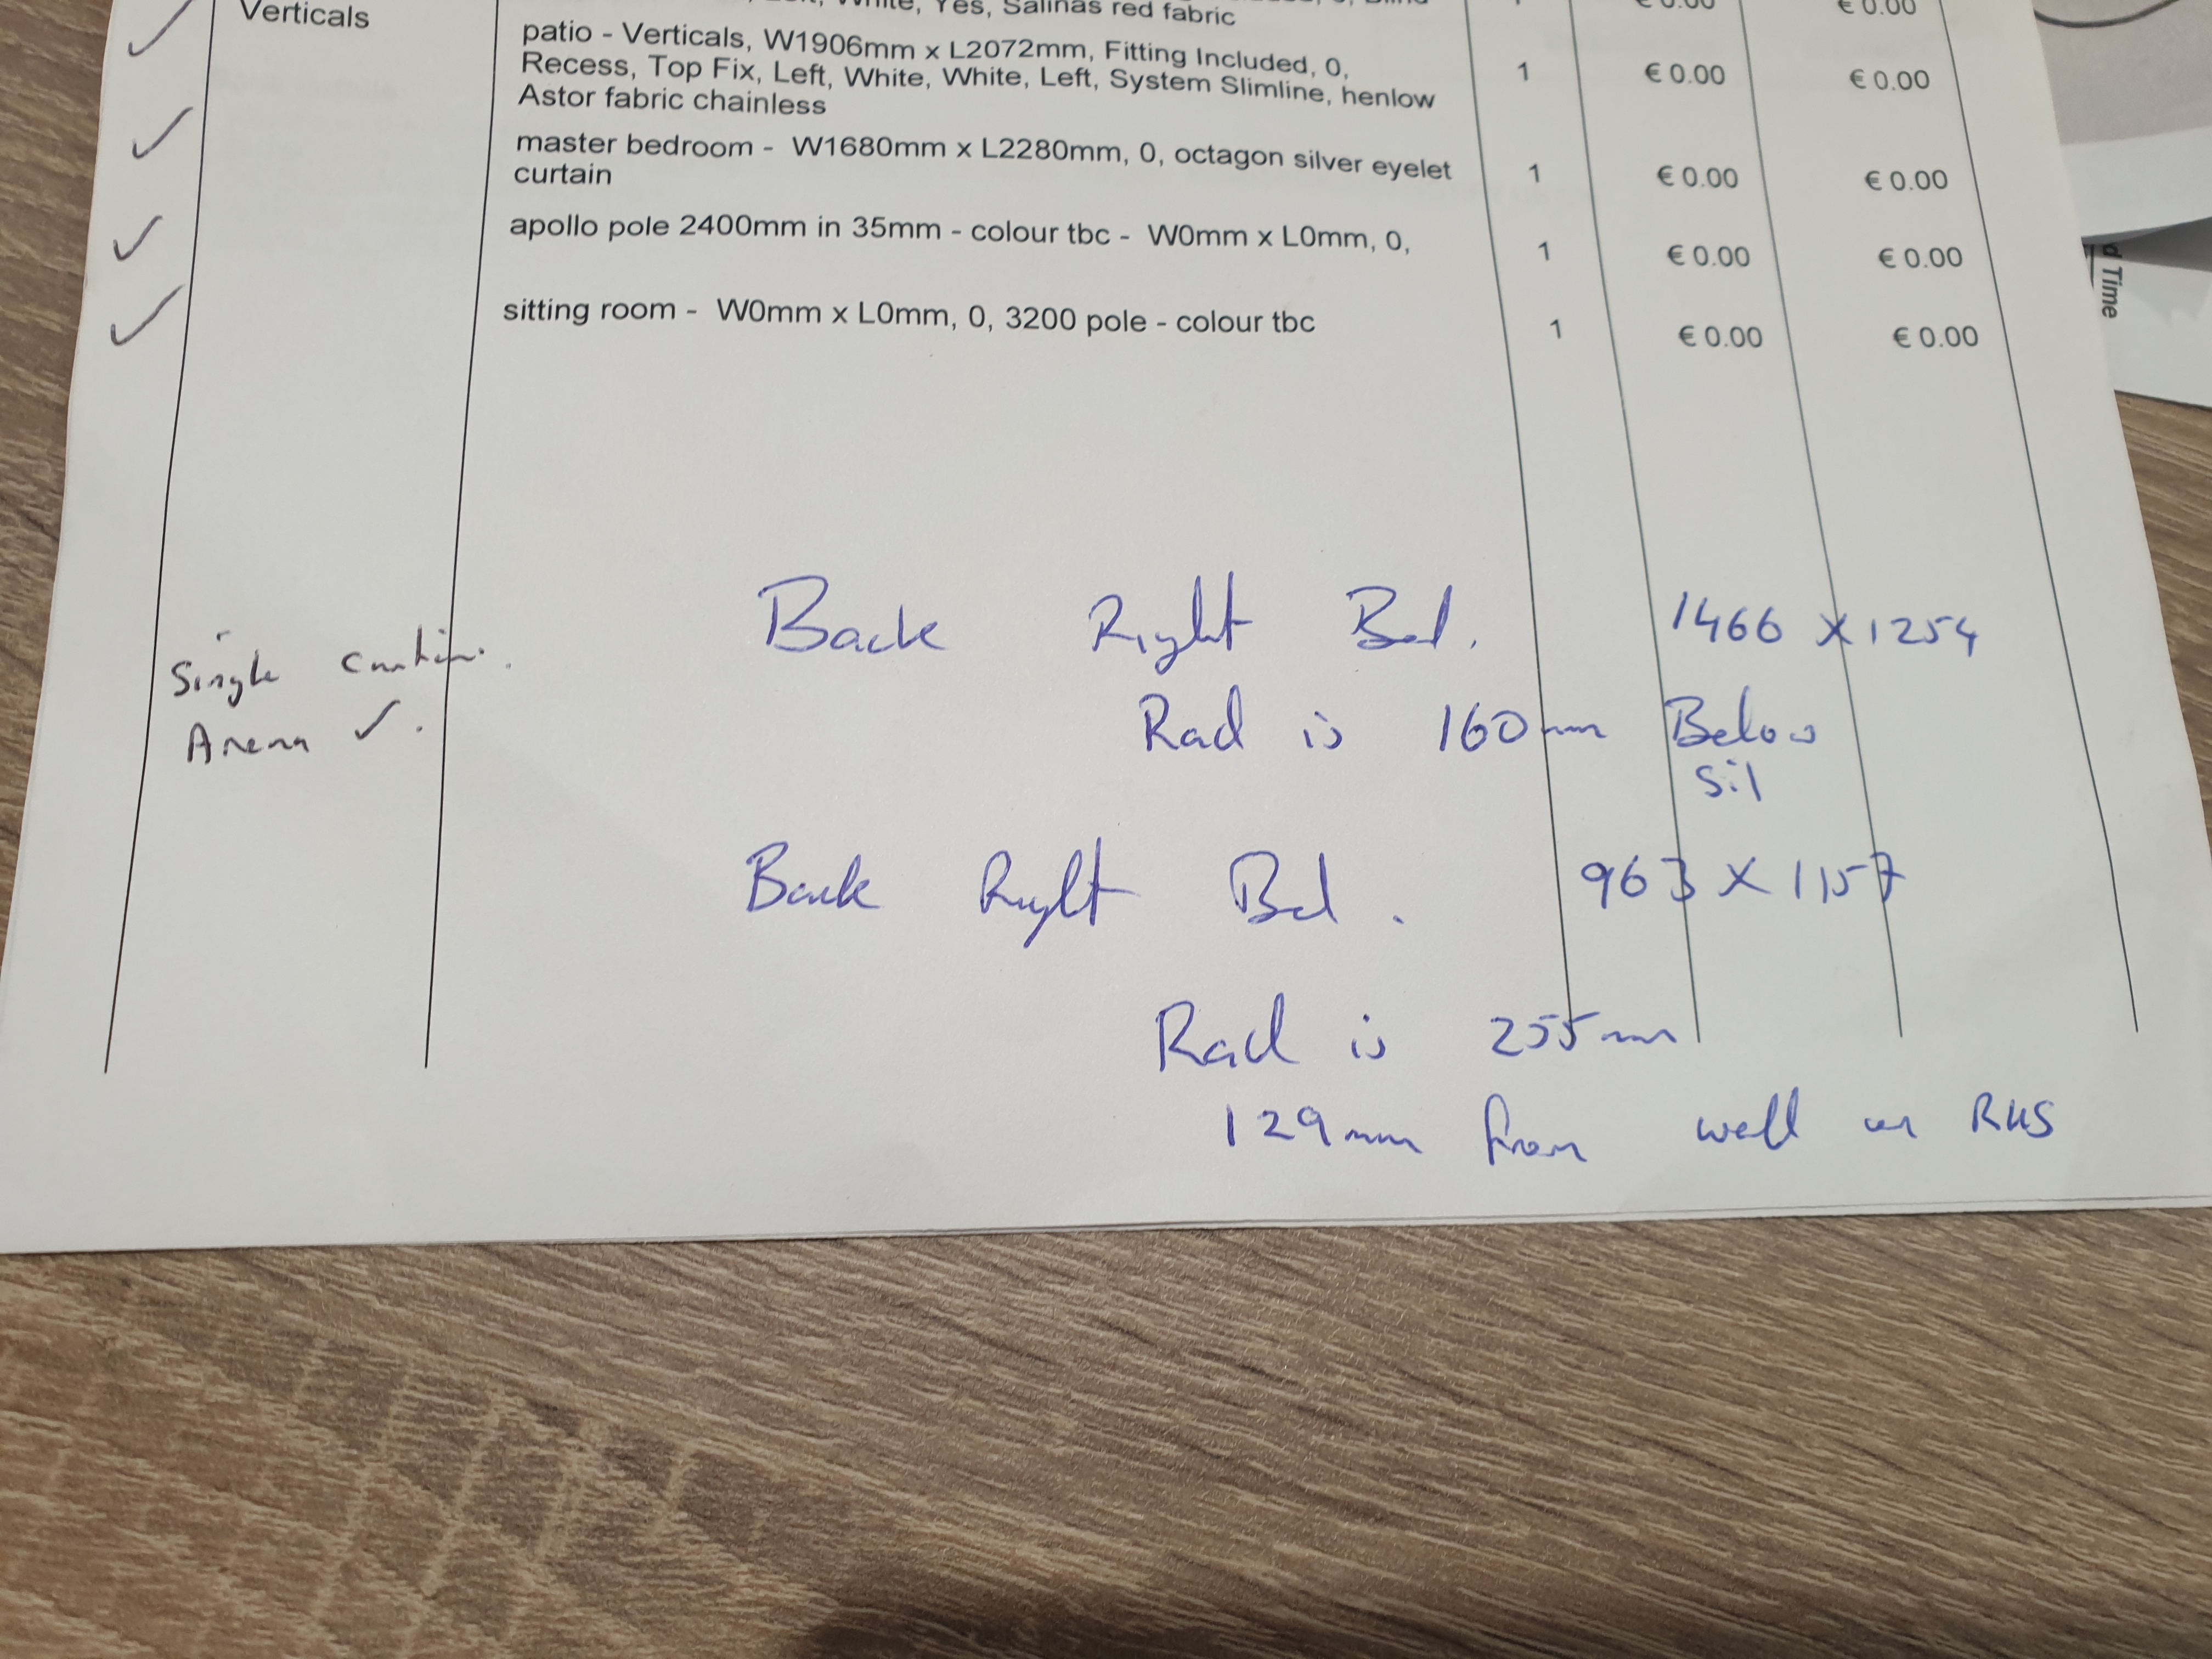 White, Yes, Salinas red fabric € 0.00 € 0.00
Verticals patio - Verticals, W1906mm x L2072mm, Fitting Included, 0,
Recess, Top Fix, Left, White, White, Left, System Slimline, henlow 1 € 0.00 € 0.00
Astor fabric chainless
master bedroom - W1680mm x L2280mm, 0, octagon silver eyelet 1 € 0.00 € 0.00
curtain
apollo pole 2400mm in 35mm - colour tbc - W0mm x L0mm, 0, 1 € 0.00 € 0.00
sitting room - W0mm x L0mm, 0, 3200 pole - colour tbc 1 € 0.00 € 0.00
d Time
Back Right Bed. 1466 x 1254
Single
Arena ✓.
Rad is 160mm Below
Sil
Back Right Bed. 963 x 1157
Rad is 255mm
129mm from wall on RHS